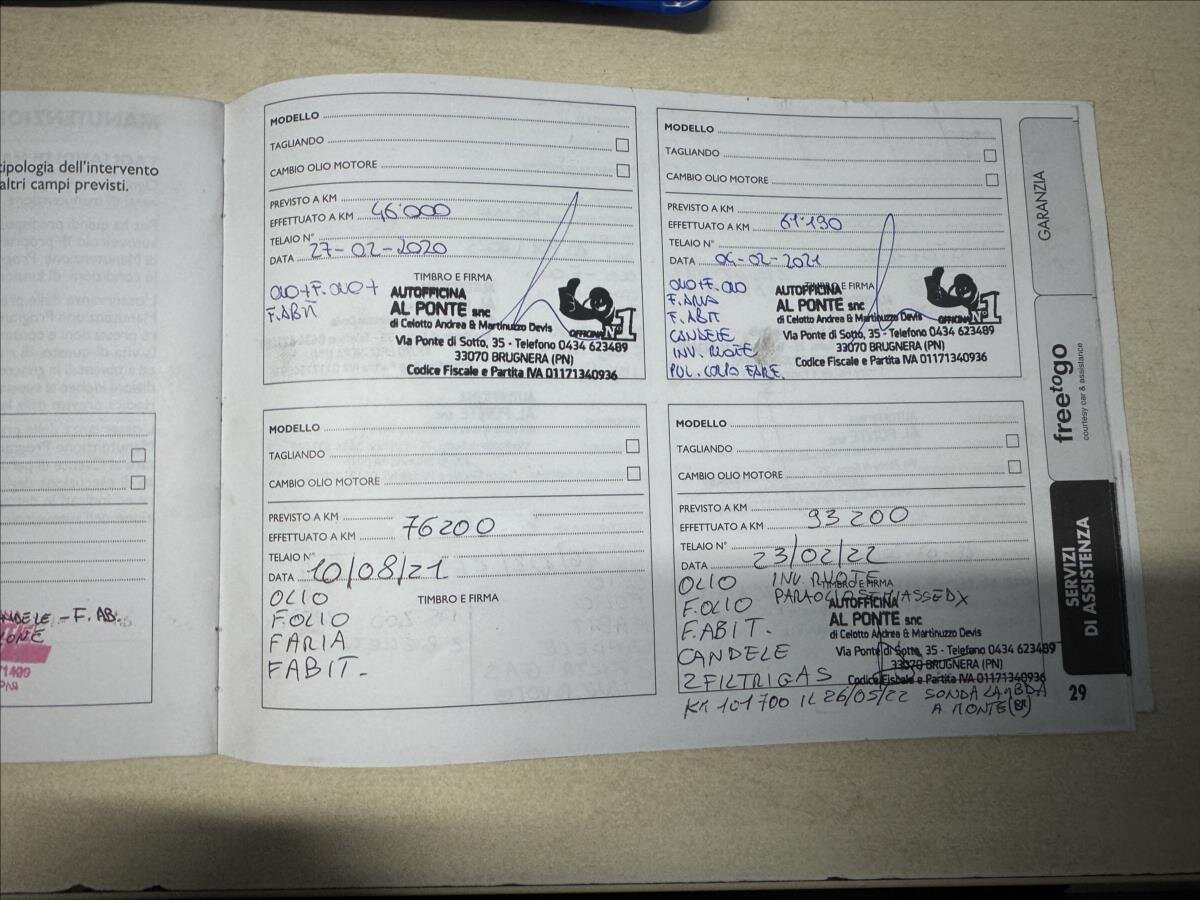 tipologia dell'intervento
altri campi previsti.
- F. AB.
MODELLO
TAGLIANDO
CAMBIO OLIO MOTORE
PREVISTO A KM
EFFETTUATO A KM 46.000
TELAIO N°
DATA 27-02-2020
TIMBRO E FIRMA
OLIO+F.OLIO+
F.ABIT
AUTOFFICINA
AL PONTE snc
di Celotto Andrea & Martinuzzo Devis
OFFICINA N°1
Via Ponte di Sotto, 35 - Telefono 0434 623489
33070 BRUGNERA (PN)
Codice Fiscale e Partita IVA 01171340936
MODELLO
TAGLIANDO
CAMBIO OLIO MOTORE
PREVISTO A KM
EFFETTUATO A KM 61.190
TELAIO N°
DATA 04-02-2021
TIMBRO E FIRMA
OLIO+F.OLIO
F.ARIA
F.ABIT
CANDELE
INV. RUOTE
PUL. CORPO FARF.
AUTOFFICINA
AL PONTE snc
di Celotto Andrea & Martinuzzo Devis
OFFICINA N°1
Via Ponte di Sotto, 35 - Telefono 0434 623489
33070 BRUGNERA (PN)
Codice Fiscale e Partita IVA 01171340936
MODELLO
TAGLIANDO
CAMBIO OLIO MOTORE
PREVISTO A KM
EFFETTUATO A KM 76200
TELAIO N°
DATA 10/08/21
TIMBRO E FIRMA
OLIO
F.OLIO
FARIA
FABIT.
MODELLO
TAGLIANDO
CAMBIO OLIO MOTORE
PREVISTO A KM
EFFETTUATO A KM 93200
TELAIO N°
DATA 23/02/22
TIMBRO E FIRMA
OLIO INV. RUOTE
F.OLIO PARAOLIO SEMIASSE DX
F.ABIT.
CANDELE
2 FILTRI GAS
AUTOFFICINA
AL PONTE snc
di Celotto Andrea & Martinuzzo Devis
Via Ponte di Sotto, 35 - Telefono 0434 623489
33070 BRUGNERA (PN)
Codice Fiscale e Partita IVA 01171340936
KM 101700 IL 26/05/22 SONDA LAMBDA
A MONTE
GARANZIA
freetogo
courtesy car & assistance
SERVIZI
DI ASSISTENZA
29